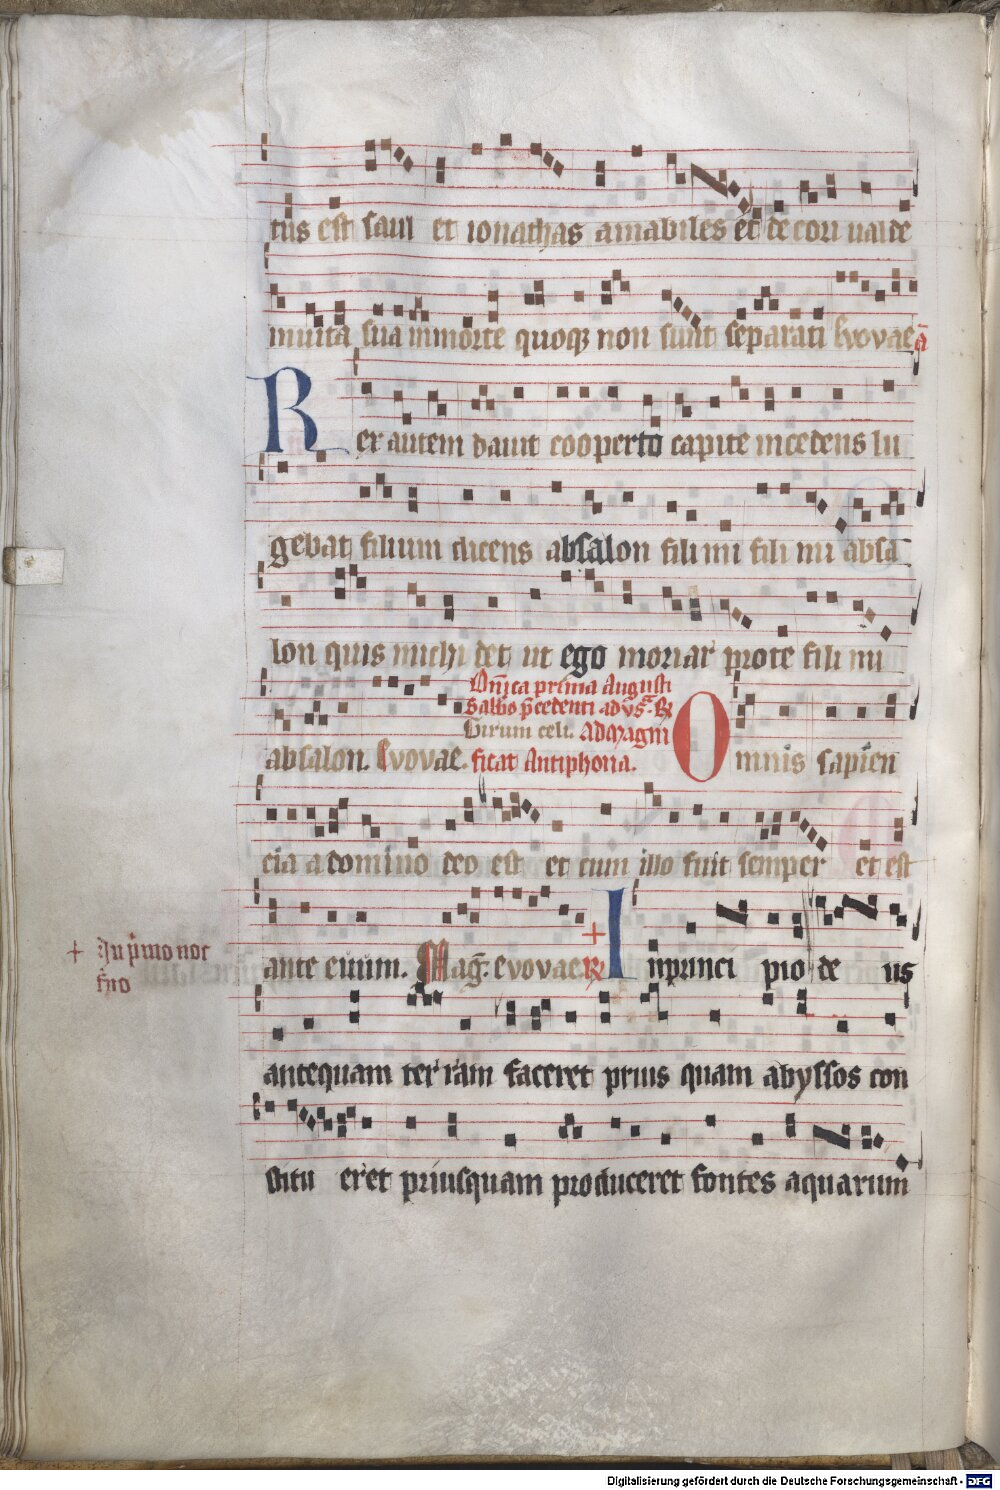 tus est saul et ionathas amabiles et decori valde
in vita sua in morte quoq non sunt separati Evovae ā
Rex autem david cooperto capite incedens lu
gebat filium dicens absalon fili mi fili mi absa
lon quis michi det ut ego moriar pro te fili mi
Dn̄ica prima Augusti
Sabbo p̄cedenti ad vs̄. R
Girum celi. Ad Magni
absalon. Evovae. ficat Antiphona. Omnis sapien
cia a domino deo est et cum illo fuit semper et est
ante evum. Mag̅. evovae. R + In princi pio de us
+ In p̄mo noc
t̄no
antequam terram faceret prius quam abyssos con
stitu eret priusquam produceret fontes aquarum
Digitalisierung gefördert durch die Deutsche Forschungsgemeinschaft - DFG